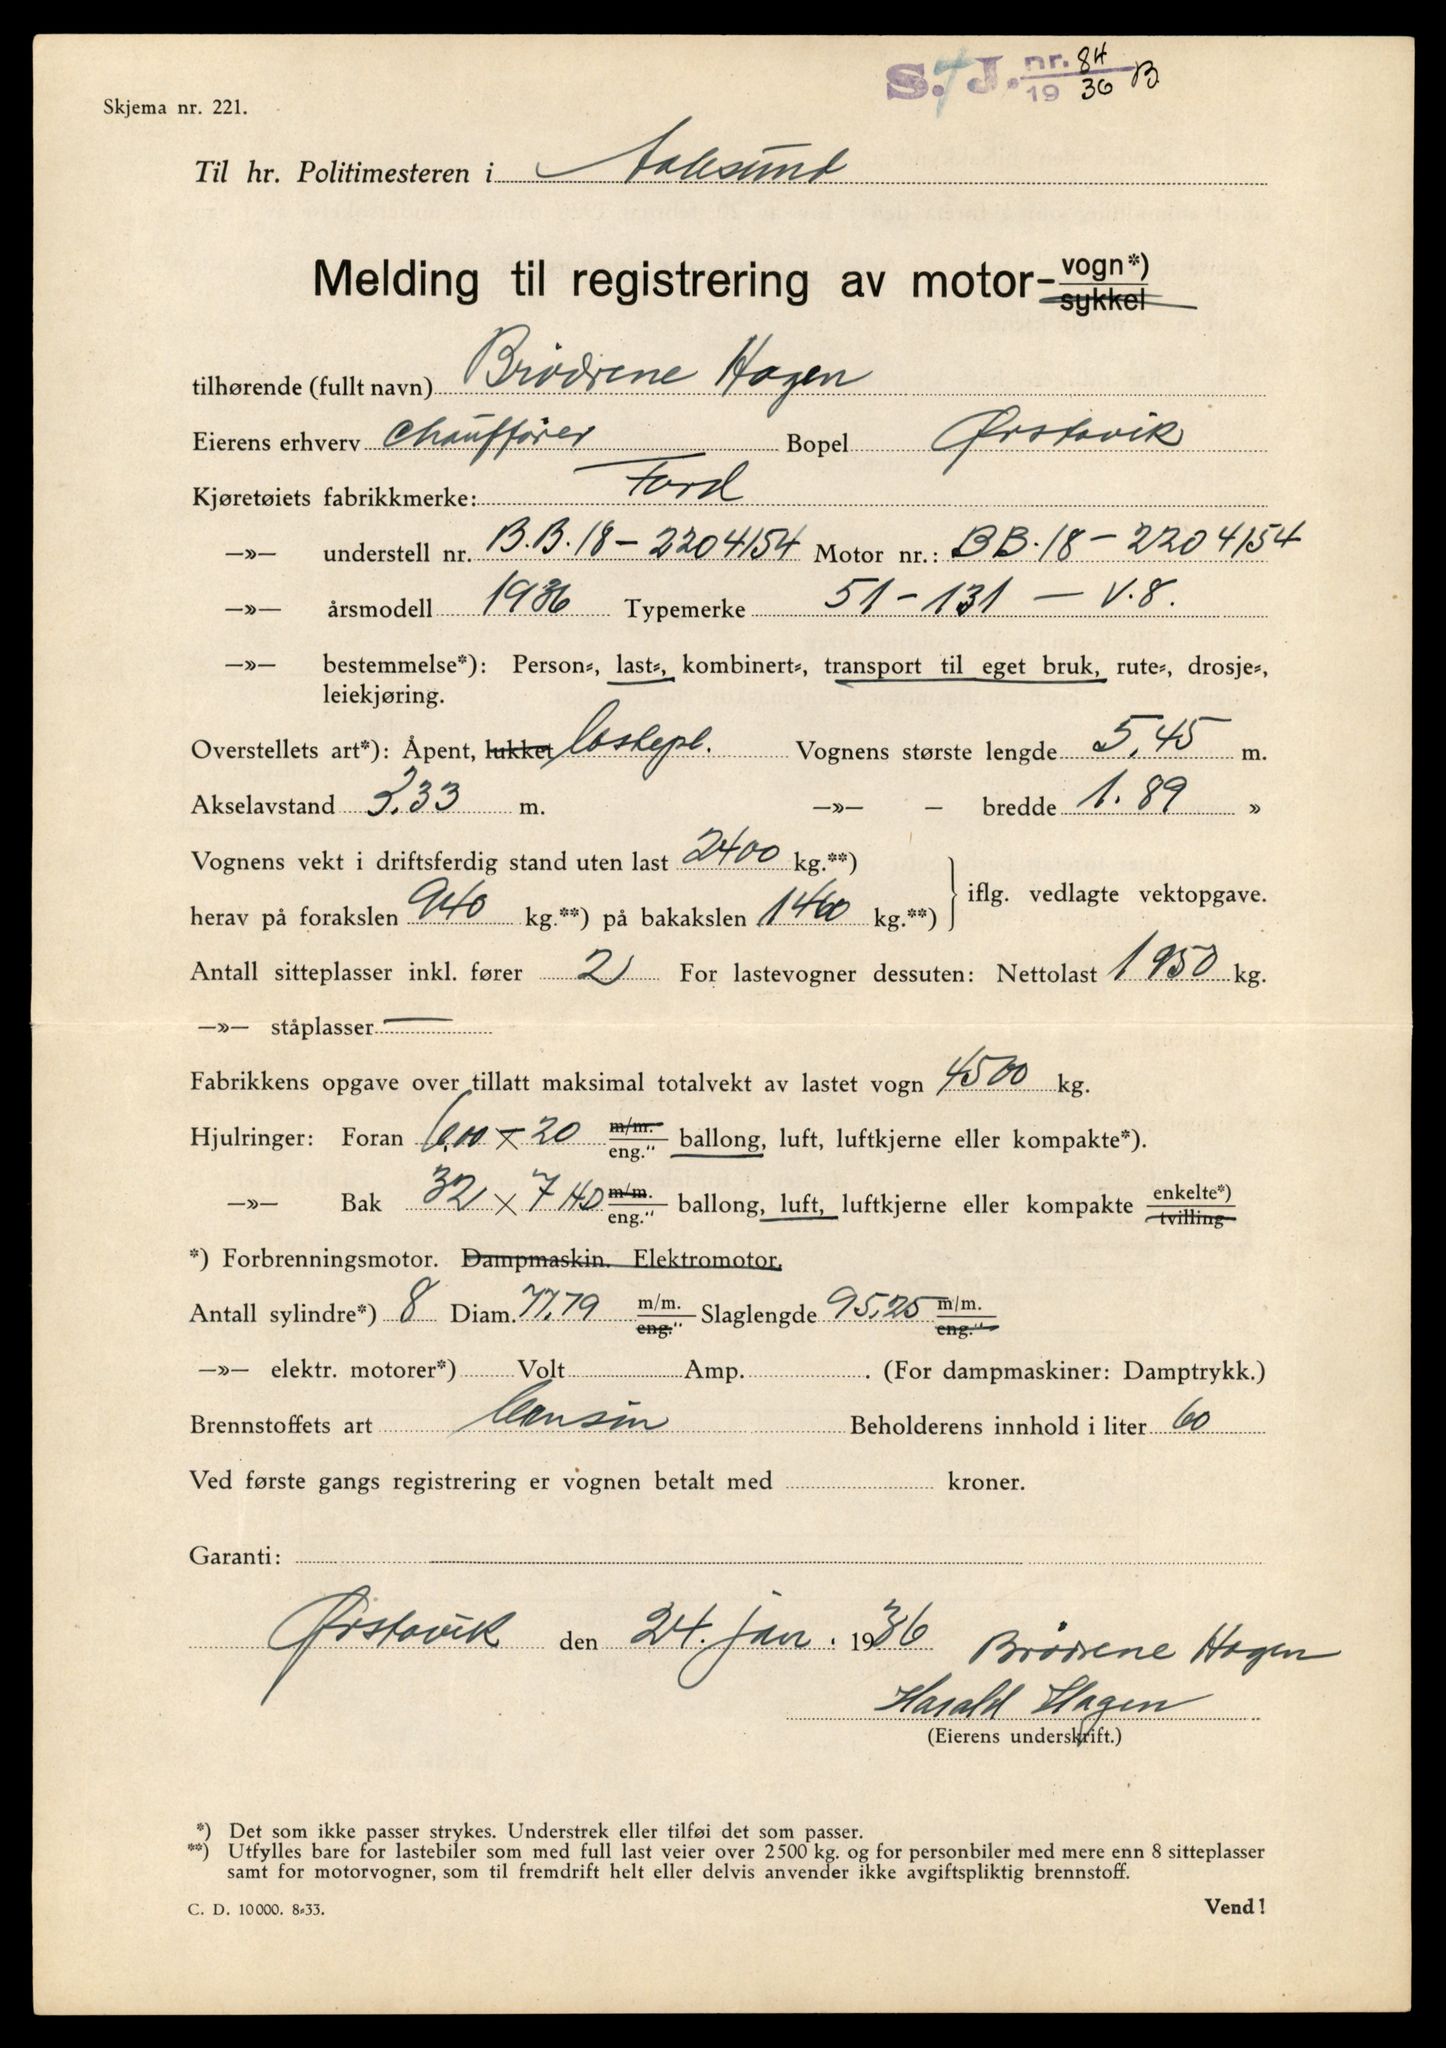 S. J. nr. 84 B
19 36
Skjema nr. 221.
Til hr. Politimesteren i Aalesund
Melding til registrering av motor- vogn*)
sykkel
tilhørende (fullt navn) Brödrene Hagen
Eierens erhverv Chauffører Bopel Ørstavik
Kjøretøiets fabrikkmerke: Ford
—»— understell nr. B.B.18 - 2204154 Motor nr.: BB.18 - 2204154
—»— årsmodell 1936 Typemerke 51 - 131 - V.8.
—»— bestemmelse*): Person-, last-, kombinert-, transport til eget bruk, rute-, drosje-,
leiekjøring.
Overstellets art*): Åpent, lukket lastepl. Vognens største lengde 5,45 m.
Akselavstand 3,33 m. —»— - bredde 1.89 »
Vognens vekt i driftsferdig stand uten last 2400 kg.**)
herav på forakslen 940 kg.**) på bakakslen 1460 kg.**) } iflg. vedlagte vektopgave.
Antall sitteplasser inkl. fører 2 For lastevogner dessuten: Nettolast 1950 kg.
—»— ståplasser —
Fabrikkens opgave over tillatt maksimal totalvekt av lastet vogn 4500 kg.
Hjulringer: Foran 6,00 × 20 m/m. eng." ballong, luft, luftkjerne eller kompakte*).
—»— Bak 32 × 7 HD m/m. eng." ballong, luft, luftkjerne eller kompakte enkelte*) tvilling
*) Forbrenningsmotor. Dampmaskin. Elektromotor.
Antall sylindre*) 8 Diam. 77,79 m/m. eng." Slaglengde 95,25 m/m. eng."
—»— elektr. motorer*) Volt Amp. . (For dampmaskiner: Damptrykk.)
Brennstoffets art Bensin Beholderens innhold i liter 60
Ved første gangs registrering er vognen betalt med kroner.
Garanti:
Ørstavik den 24. jan. 1936 Brödrene Hagen
Harald Hagen
(Eierens underskrift.)
*) Det som ikke passer strykes. Understrek eller tilføi det som passer.
**) Utfylles bare for lastebiler som med full last veier over 2500 kg. og for personbiler med mere enn 8 sitteplasser
samt for motorvogner, som til fremdrift helt eller delvis anvender ikke avgiftspliktig brennstoff.
C. D. 10000. 8-33. Vend!